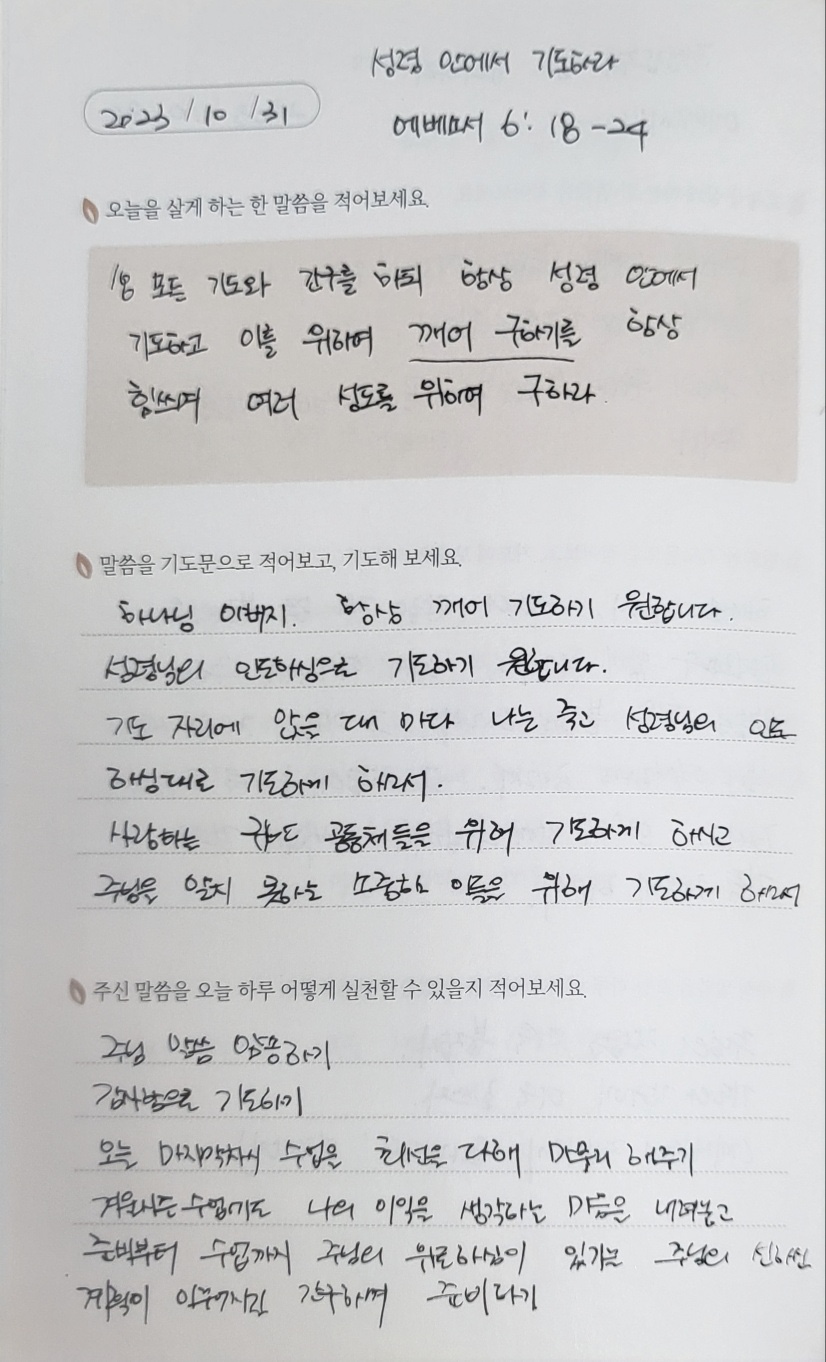 성령 안에서 기도하라
2023/10/31
에베소서 6: 18-24
오늘을 살게 하는 한 말씀을 적어보세요.
18 모든 기도와 간구를 하되 항상 성령 안에서
기도하고 이를 위하여 깨어 구하기를 항상
힘쓰며 여러 성도를 위하여 구하라
말씀을 기도문으로 적어보고, 기도해 보세요.
하나님 아버지. 항상 깨어 기도하기 원합니다.
성령님의 인도하심으로 기도하기 원합니다.
기도 자리에 앉을 때 마다 나는 죽고 성령님의 인도
하심대로 기도하게 하소서.
사랑하는 공동체들을 위해 기도하게 하시고
주님을 알지 못하는 소중한 이들을 위해 기도하게 하소서
주신 말씀을 오늘 하루 어떻게 실천할 수 있을지 적어보세요.
주님 말씀 암송하기
감사함으로 기도하기
오늘 마지막차시 수업을 최선을 다해 마무리 해주기
겨울시즌 수업에도 나의 이익을 생각하는 마음을 내려놓고
준비부터 수업까지 주님의 위로하심이 있기를 주님의 신하신
계획이 간구하며 준비하기